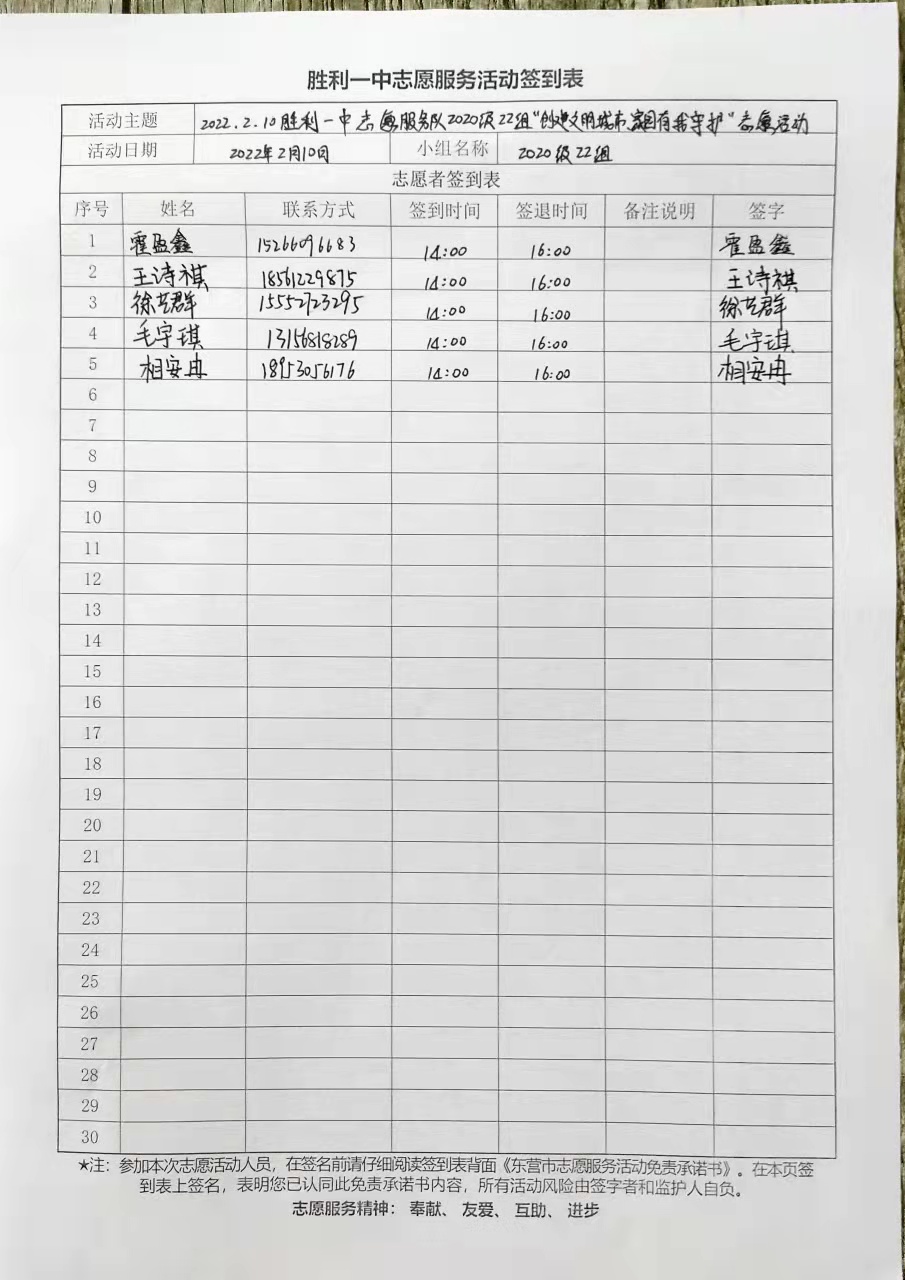 胜利一中志愿服务活动签到表
活动主题 2022.2.10胜利一中志愿服务队2020级22组“创建文明城市,家园有我守护”志愿活动
活动日期 2022年2月10日 小组名称 2020级22组
志愿者签到表
序号 姓名 联系方式 签到时间 签退时间 备注说明 签字
1 霍盈鑫 15266096683 14:00 16:00 霍盈鑫
2 王诗祺 18561229875 14:00 16:00 王诗祺
3 徐艺群 15552723295 14:00 16:00 徐艺群
4 毛宇琪 13156818289 14:00 16:00 毛宇琪
5 相安冉 18953056176 14:00 16:00 相安冉
6
7
8
9
10
11
12
13
14
15
16
17
18
19
20
21
22
23
24
25
26
27
28
29
30
*注：参加本次志愿活动人员，在签名前请仔细阅读签到表背面《东营市志愿服务活动免责承诺书》。在本页签
到表上签名，表明您已认同此免责承诺书内容，所有活动风险由签字者和监护人自负。
志愿服务精神：奉献、友爱、互助、进步